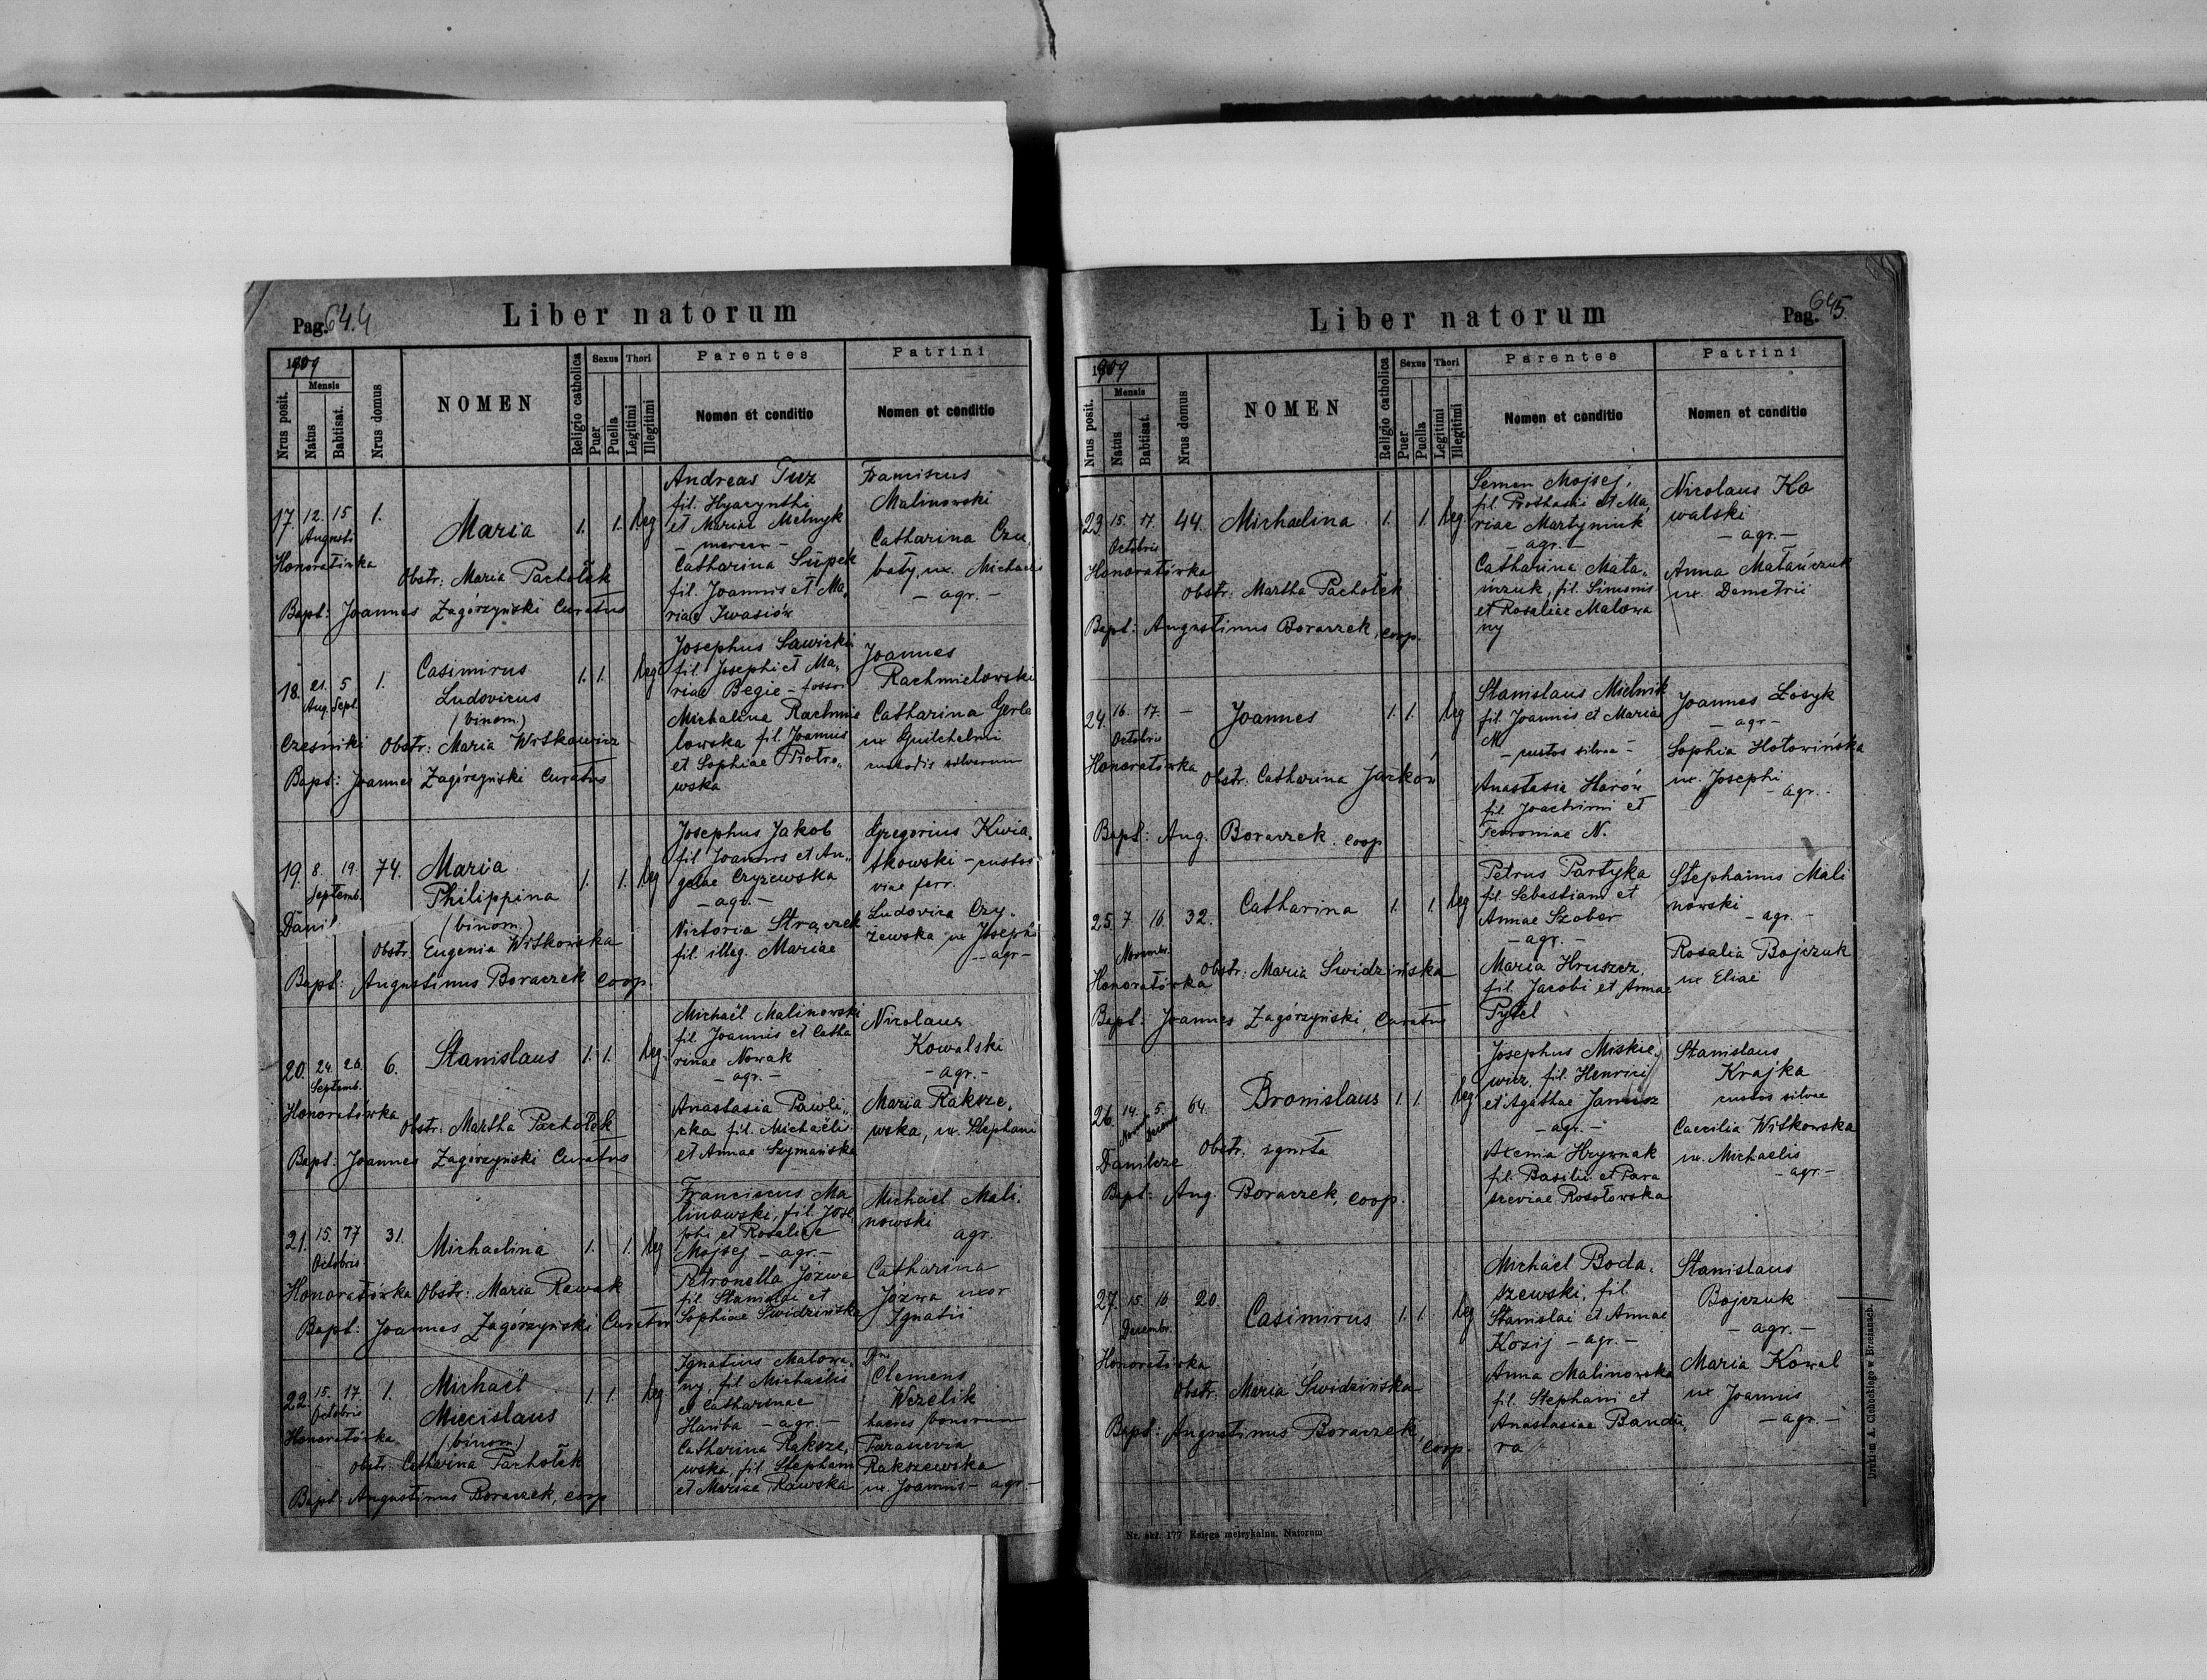 Pag. 644
Liber natorum
1909
Nrus posit.
Mensis
Natus
Babtisat.
Nrus domus
NOMEN
Religio catholica
Sexus
Puer
Puella
Thori
Legitimi
Illegitimi
Parentes
Nomen et conditio
Patrini
Nomen et conditio
17. 12. 15 1. Maria 1. 1. leg
Augusti
Honoratówka
Obstr: Maria Pachołek
Bapt: Joannes Zagórzyński Curatus
Andreas Tuz
fil. Hyacynthi
et Mariae Melnyk
Catharina Supek
fil. Joannis et Ma„
riae Iwasiów
Franciscus
Malinowski
Catharina Czu„
baty, ux. Michaelis
- agr. -
18. 21. 5 1. Casimirus 1. 1. leg
Aug. Sept.
Ludovicus
(binom.)
Cześniki Obstr: Maria Witkowicz
Bapt: Joannes Zagórzyński Curatus
Josephus Sawicki
fil. Josephi et Ma„
riae Begie - fossor
Michalina Rachmie
lowska fil. Joannis
et Sophiae Piotro„
wska
Joannes
Rachmielowski
Catharina Gerla
ux Guilhelmi
custodis silvarum
19. 8. 19. 74. Maria 1. 1. leg
Septemb.
Philippina
(binom.)
Danil
Obstr. Eugenia Witkowska
Bapt: Augustinus Boraczek coop.
Josephus Jakob
fil Joannis et An„
gelae Czyzewska
- agr. -
Victoria Strączek
fil. illeg. Mariae
Gregorius Kwia„
tkowski - custos
viae ferr.
Ludovica Czy„
żewska ux Josephi
- agr -
20. 24. 26. 6. Stanislaus 1. 1. leg.
Septemb.
Honoratówka
Obstr: Martha Pachołek
Bapt: Joannes Zagórzyński Curatus
Michaël Malinowski
fil. Joannis et Catha
rinae Nowak
- agr. -
Anastasia Pawli„
cka fil. Michaëlis
et Annae Szymańska
Nicolaus
Kowalski
- agr. -
Maria Raksze„
wska, ux. Stephani
21. 15. 17 31. Michaelina 1. 1. leg
Octobris
Honoratówka Obstr: Maria Rewak
Bapt: Joannes Zagórzyński Curatus
Franciscus Ma
linowski, fil. Jose
phi et Rosaliae
Mojsej - agr. -
Petronella Józwa
fil. Stanislai et
Sophiae Swidzińska
Michaël Mali„
nowski
agr.
Catharina
Józwa uxor
Ignatii
22. 15. 17. 1. Michaël 1. 1. leg
Octobris
Miecislaus
(binom.)
Honoratówka
obstr. Catharina Pachołek
Bapt: Augustinus Boraczek, coop
Ignatius Malowa„
ny, fil Michaëlis
et Catharinae
Hariba - agr. -
Catharina Raksze„
wska, fil. Stephani
et Mariae Rawska
Dns
Clemens
Wezelik
haeres bonorum
Paraxevia
Rakszewska
ux. Joannis - agr. -
Liber natorum
Pag. 645.
1909
Nrus posit.
Mensis
Natus
Babtisat.
Nrus domus
NOMEN
Religio catholica
Sexus
Puer
Puella
Thori
Legitimi
Illegitimi
Parentes
Nomen et conditio
Patrini
Nomen et conditio
23. 15. 17. 44. Michaelina 1. 1. leg
Octobris
Honoratówka
Obstr. Martha Pachołek
Bapt: Augustinus Boraczek, coop.
Semen Mojsej,
fil. Prothasii et Ma„
riae Martyniuk
- agr. -
Catharina Mata„
ńczuk, fil. Simonis
et Rosaliae Malowa
ny
Nicolaus Ko
walski
- agr. -
Anna Matańczuk
ux. Demetrii
24. 16. 17. - Joannes 1. 1. leg
Octobris
Honoratówka
Obstr. Catharina Jurków
Bapt: Aug. Boraczek. coop
Stanislaus Mielnik
fil Joannis et Mariae
M
- custos silvae -
Anastasia Harów
fil. Joachimi et
Feuroniae N.
Joannes Łosyk
- agr -
Sophia Hołowińska
ux. Josephi
- agr. -
25. 7. 16. 32. Catharina 1. 1. leg
Novembr.
Honoratówka
Obstr: Maria Świdzińska
Bapt: Joannes Zagórzyński, Curatus
Petrus Partyka
fil. Sebastiani et
Annae Szobor
- agr. -
Maria Hruszcz,
fil. Jacobi et Annae
Pytel
Stephanus Mali
nowski
- agr. -
Rosalia Bojczuk
ux Eliae
26. 14. 5. 64. Bronislaus 1. 1. leg
Danilcze
Obstr. zgnita
Bapt: Aug. Boraczek, coop.
Josephus Miskie„
wicz, fil. Henrici
et Agathae Janusz
- agr. -
Axenia Hrywnak
fil. Basilii et Para
sceviae Rosołowska
Stanislaus
Krajka
custos silvae
Caecilia Witkowska
ux. Michaelis
- agr. -
27. 15. 16 20. Casimirus 1. 1. leg
Decembr.
Honoratówka
Obstr. Maria Świdzińska
Bapt: Augustinus Boraczek,
coop.
Michaël Boda„
szewski, fil
Stanislai et Annae
Kozij - agr. -
Anna Malinowska
fil. Stephani et
Anastasiae Bandu„
ra
Stanislaus
Bojczuk
- agr. -
Maria Kowal
ux Joannis
- agr. -
Drukiem A. Cichockiego w Brzeżanach.
Nr. skł. 177 Księga metrykalna. Natorum